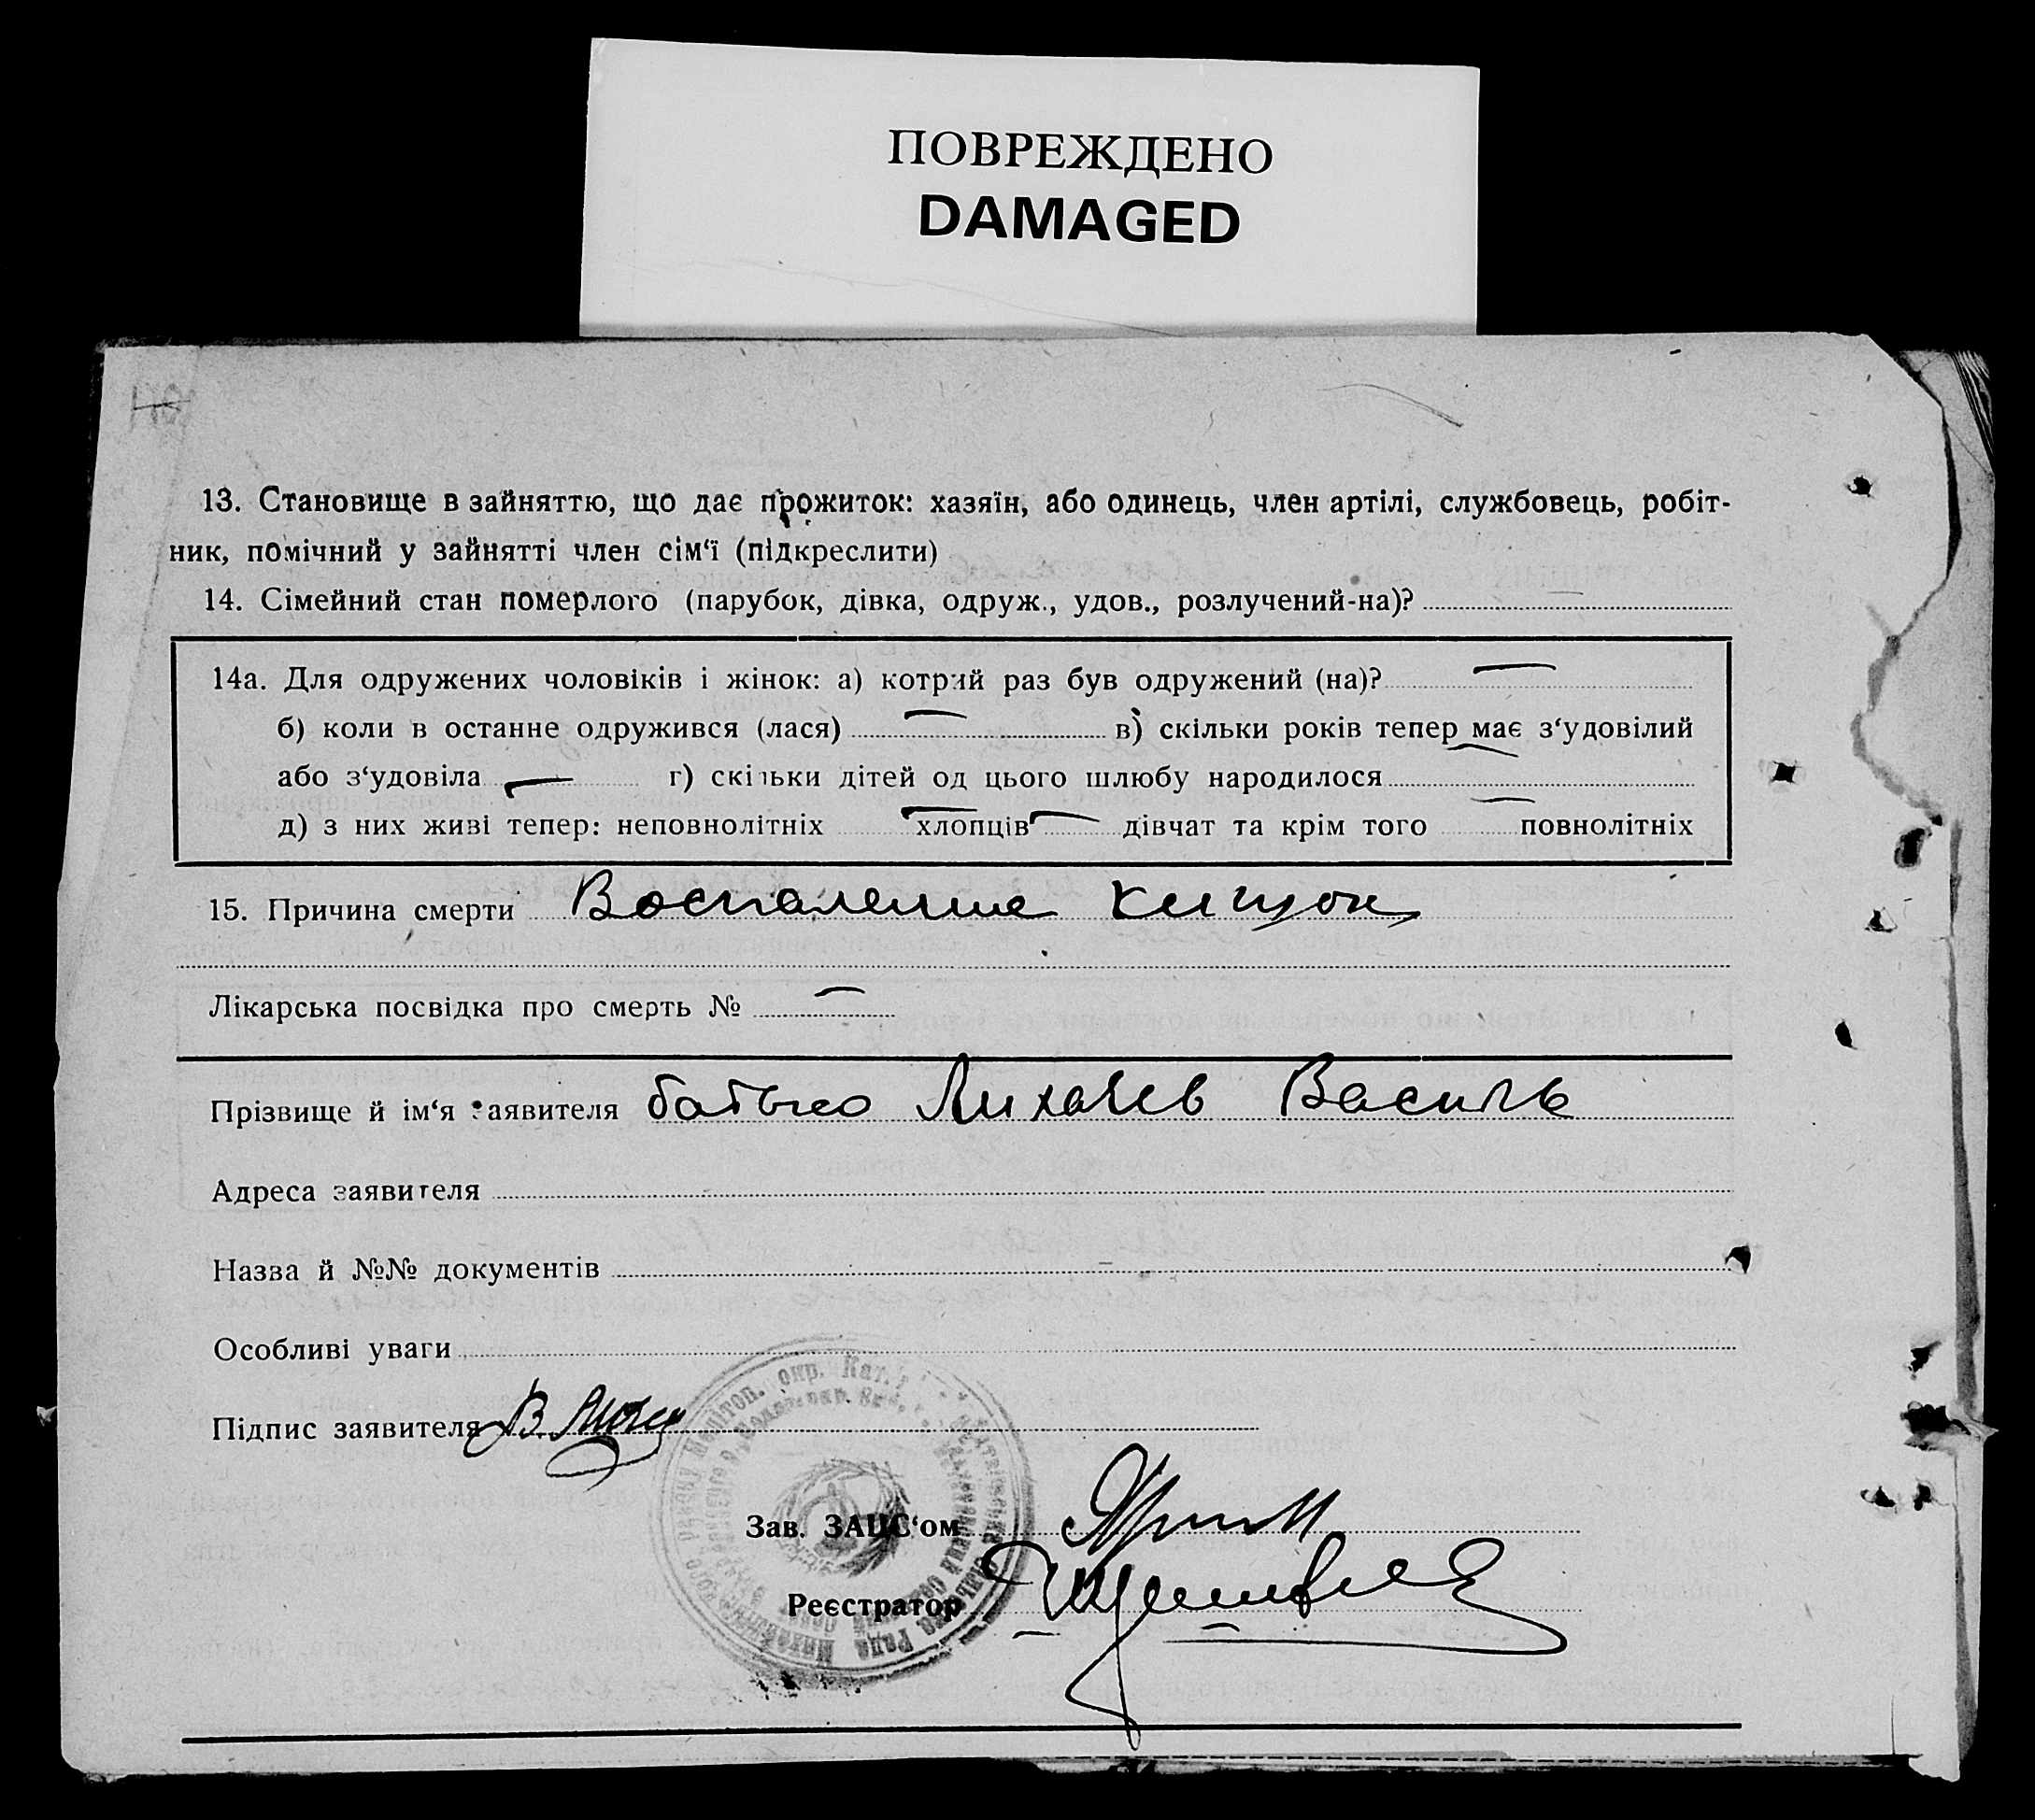 ПОВРЕЖДЕНО
DAMAGED
13. Становище в зайняттю, що дає прожиток: хазяїн, або одинець, член артілі, службовець, робіт-
ник, помічний у зайнятті член сім‘ї (підкреслити)
14. Сімейний стан померлого (парубок, дівка, одруж., удов., розлучений-на)? —
14а. Для одружених чоловіків і жінок: а) котрий раз був одружений (на)? —
б) коли в останне одружився (лася) — в) скільки років тепер має з‘удовілий
або з‘удовіла — г) скільки дітей од цього шлюбу народилося —
д) з них живі тепер: неповнолітніх — хлопців — дівчат та крім того — повнолітніх
15. Причина смерти Воспаление кишок
Лікарська посвідка про смерть № —
Прізвище й ім‘я заявителя батько Лихачев Василь
Адреса заявителя
Назва й №№ документів
Особливі уваги
Підпис заявителя
Зав. ЗАЦС‘ом
Реєстратор